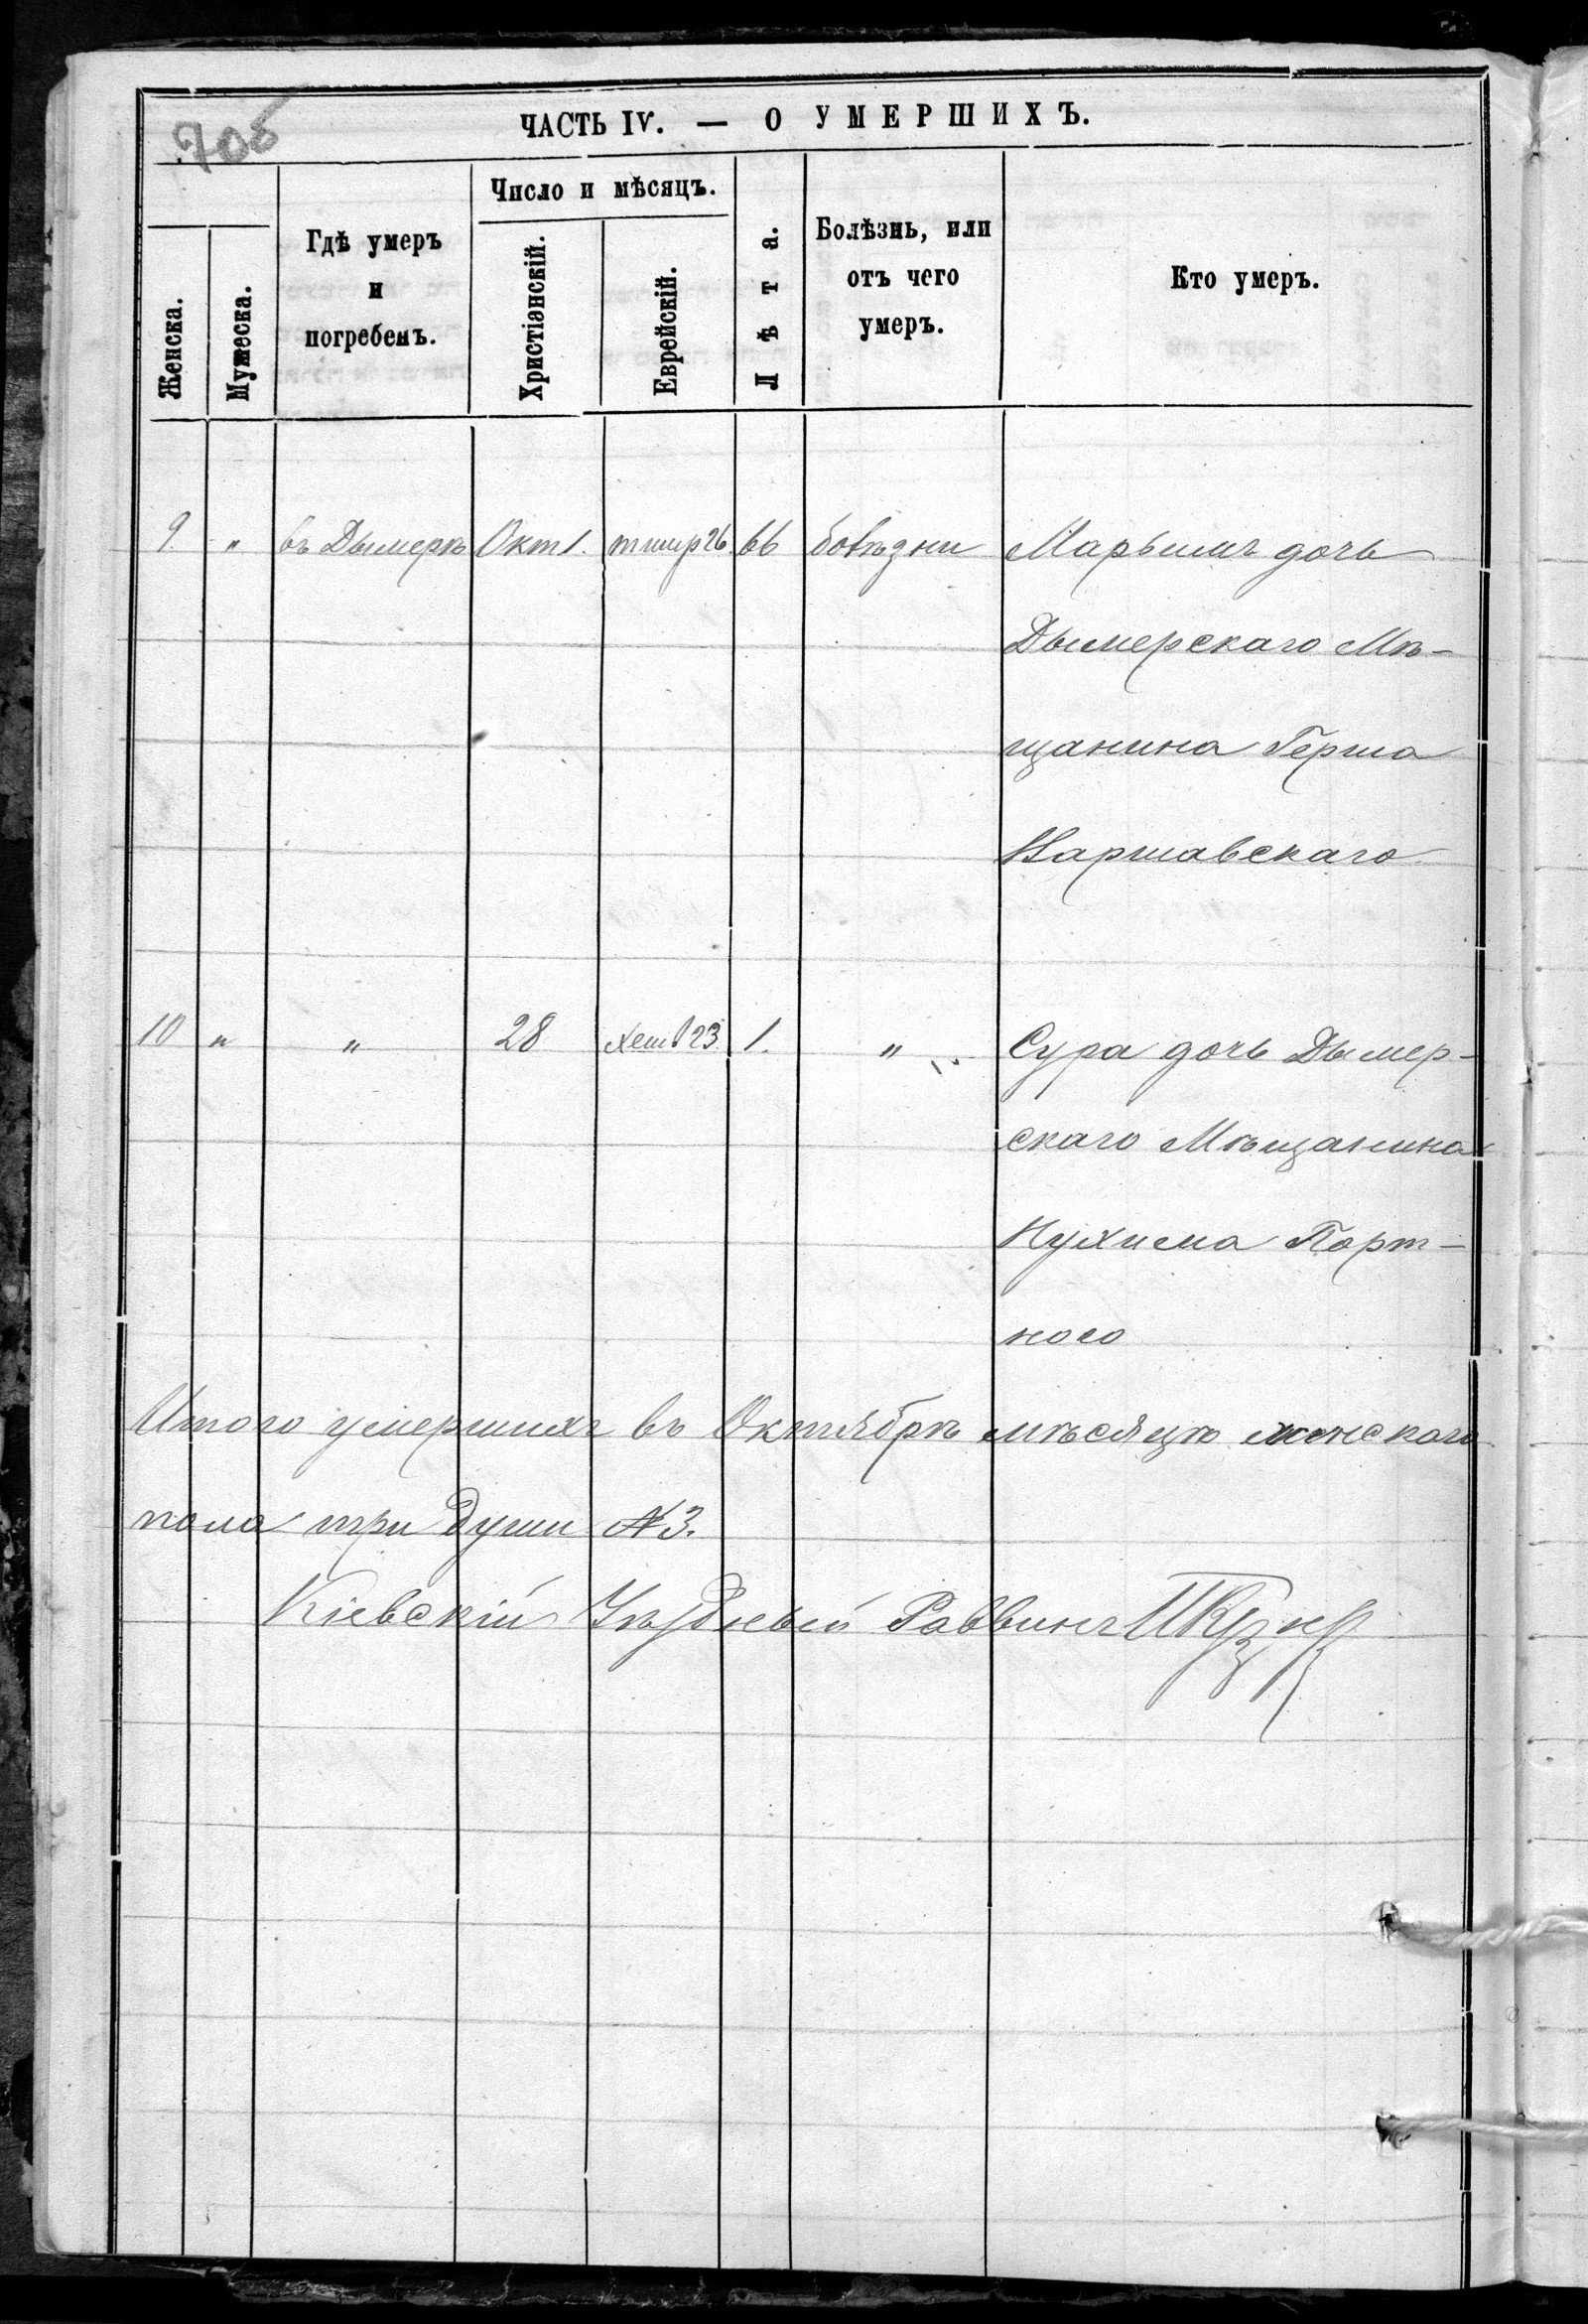 705
ЧАСТЬ IV. — О УМЕРШИХЪ.
Женска.
Мужеска.
Гдѣ умеръ
и
погребенъ.
Число и мѣсяцъ.
Христіанскій.
Еврейскій.
Лѣта.
Болѣзнь, или
отъ чего
умеръ.
Кто умеръ.
9. " въ Дымерѣ Окт 1. тишр 26 66 болѣзни Марьямъ дочь
Дымерскаго Мѣ-
щанина Герша
Варшавскаго
10 " " 28 Хешв 23 1. " Сура дочь Дымер-
скаго Мѣщанина
Нухима Порт-
ного
Итого умершихъ въ Октябрѣ мѣсяцѣ женскаго
пола три души № 3.
Кіевскій Уѣздный Раввинъ